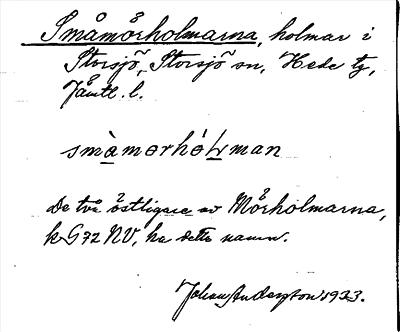 Småmörholmarna, holmar i
Storsjö, Storsjö sn, Hede tg,
Jämtl. l.
smàmərhólman
De två östligare av Mörholmarna,
k G72 NV, ha detta namn.
Johan Anderzton 1933.